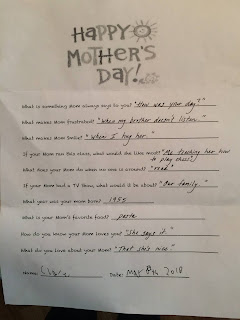 HAPPY
MOTHER'S
DAY!
What is something Mom always says to you? "How was your day?"
What makes Mom frustrated? "When my brother doesn't listen."
What makes Mom smile? "When I hug her."
If your Mom ran this class, what would she like most? "Me teaching her how
to play chess!"
What does your Mom do when no one is around? "read"
If your Mom had a TV Show, what would it be about? "Our family."
What year was your mom born? 1955
What is your Mom's favorite food? pasta
How do you know your Mom loves you? "She says it."
What do you love about your Mom? "That she's nice."
Name: Date: May 8th 2018